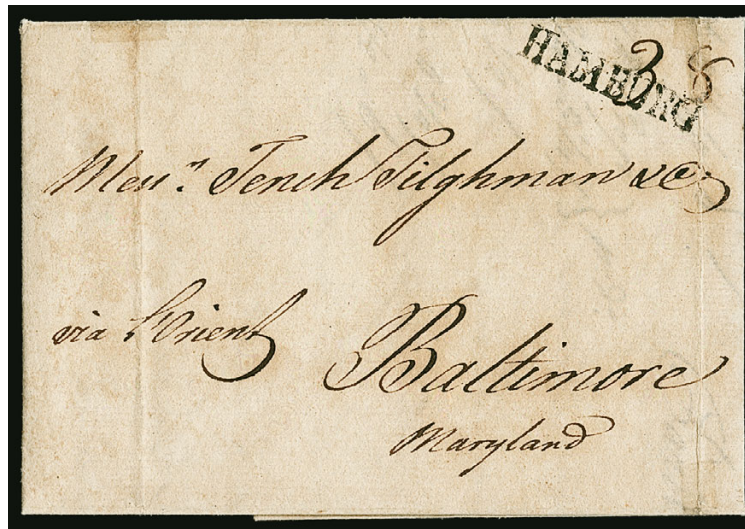 HAMBURG
3 8
Messrs. Tench Tilghman & Co.
via L'Orient
Baltimore
Maryland